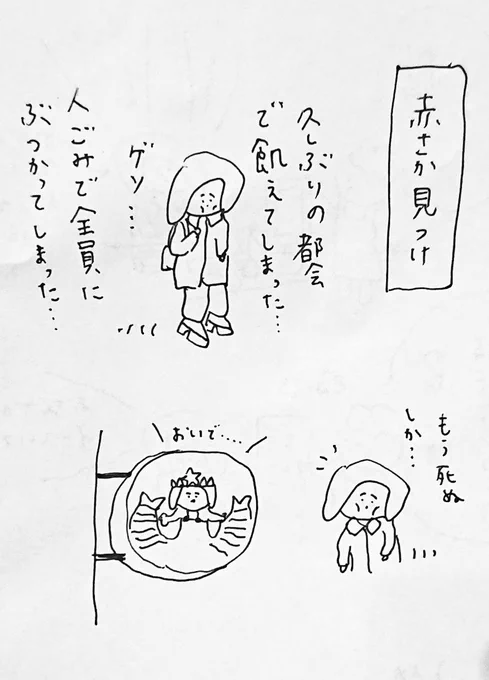 赤さか見つけ
久しぶりの都会
で飢えてしまった…
ゲソ…
人ごみで全員に
ぶつかってしまった…
もう死ぬ
しか…
おいで….